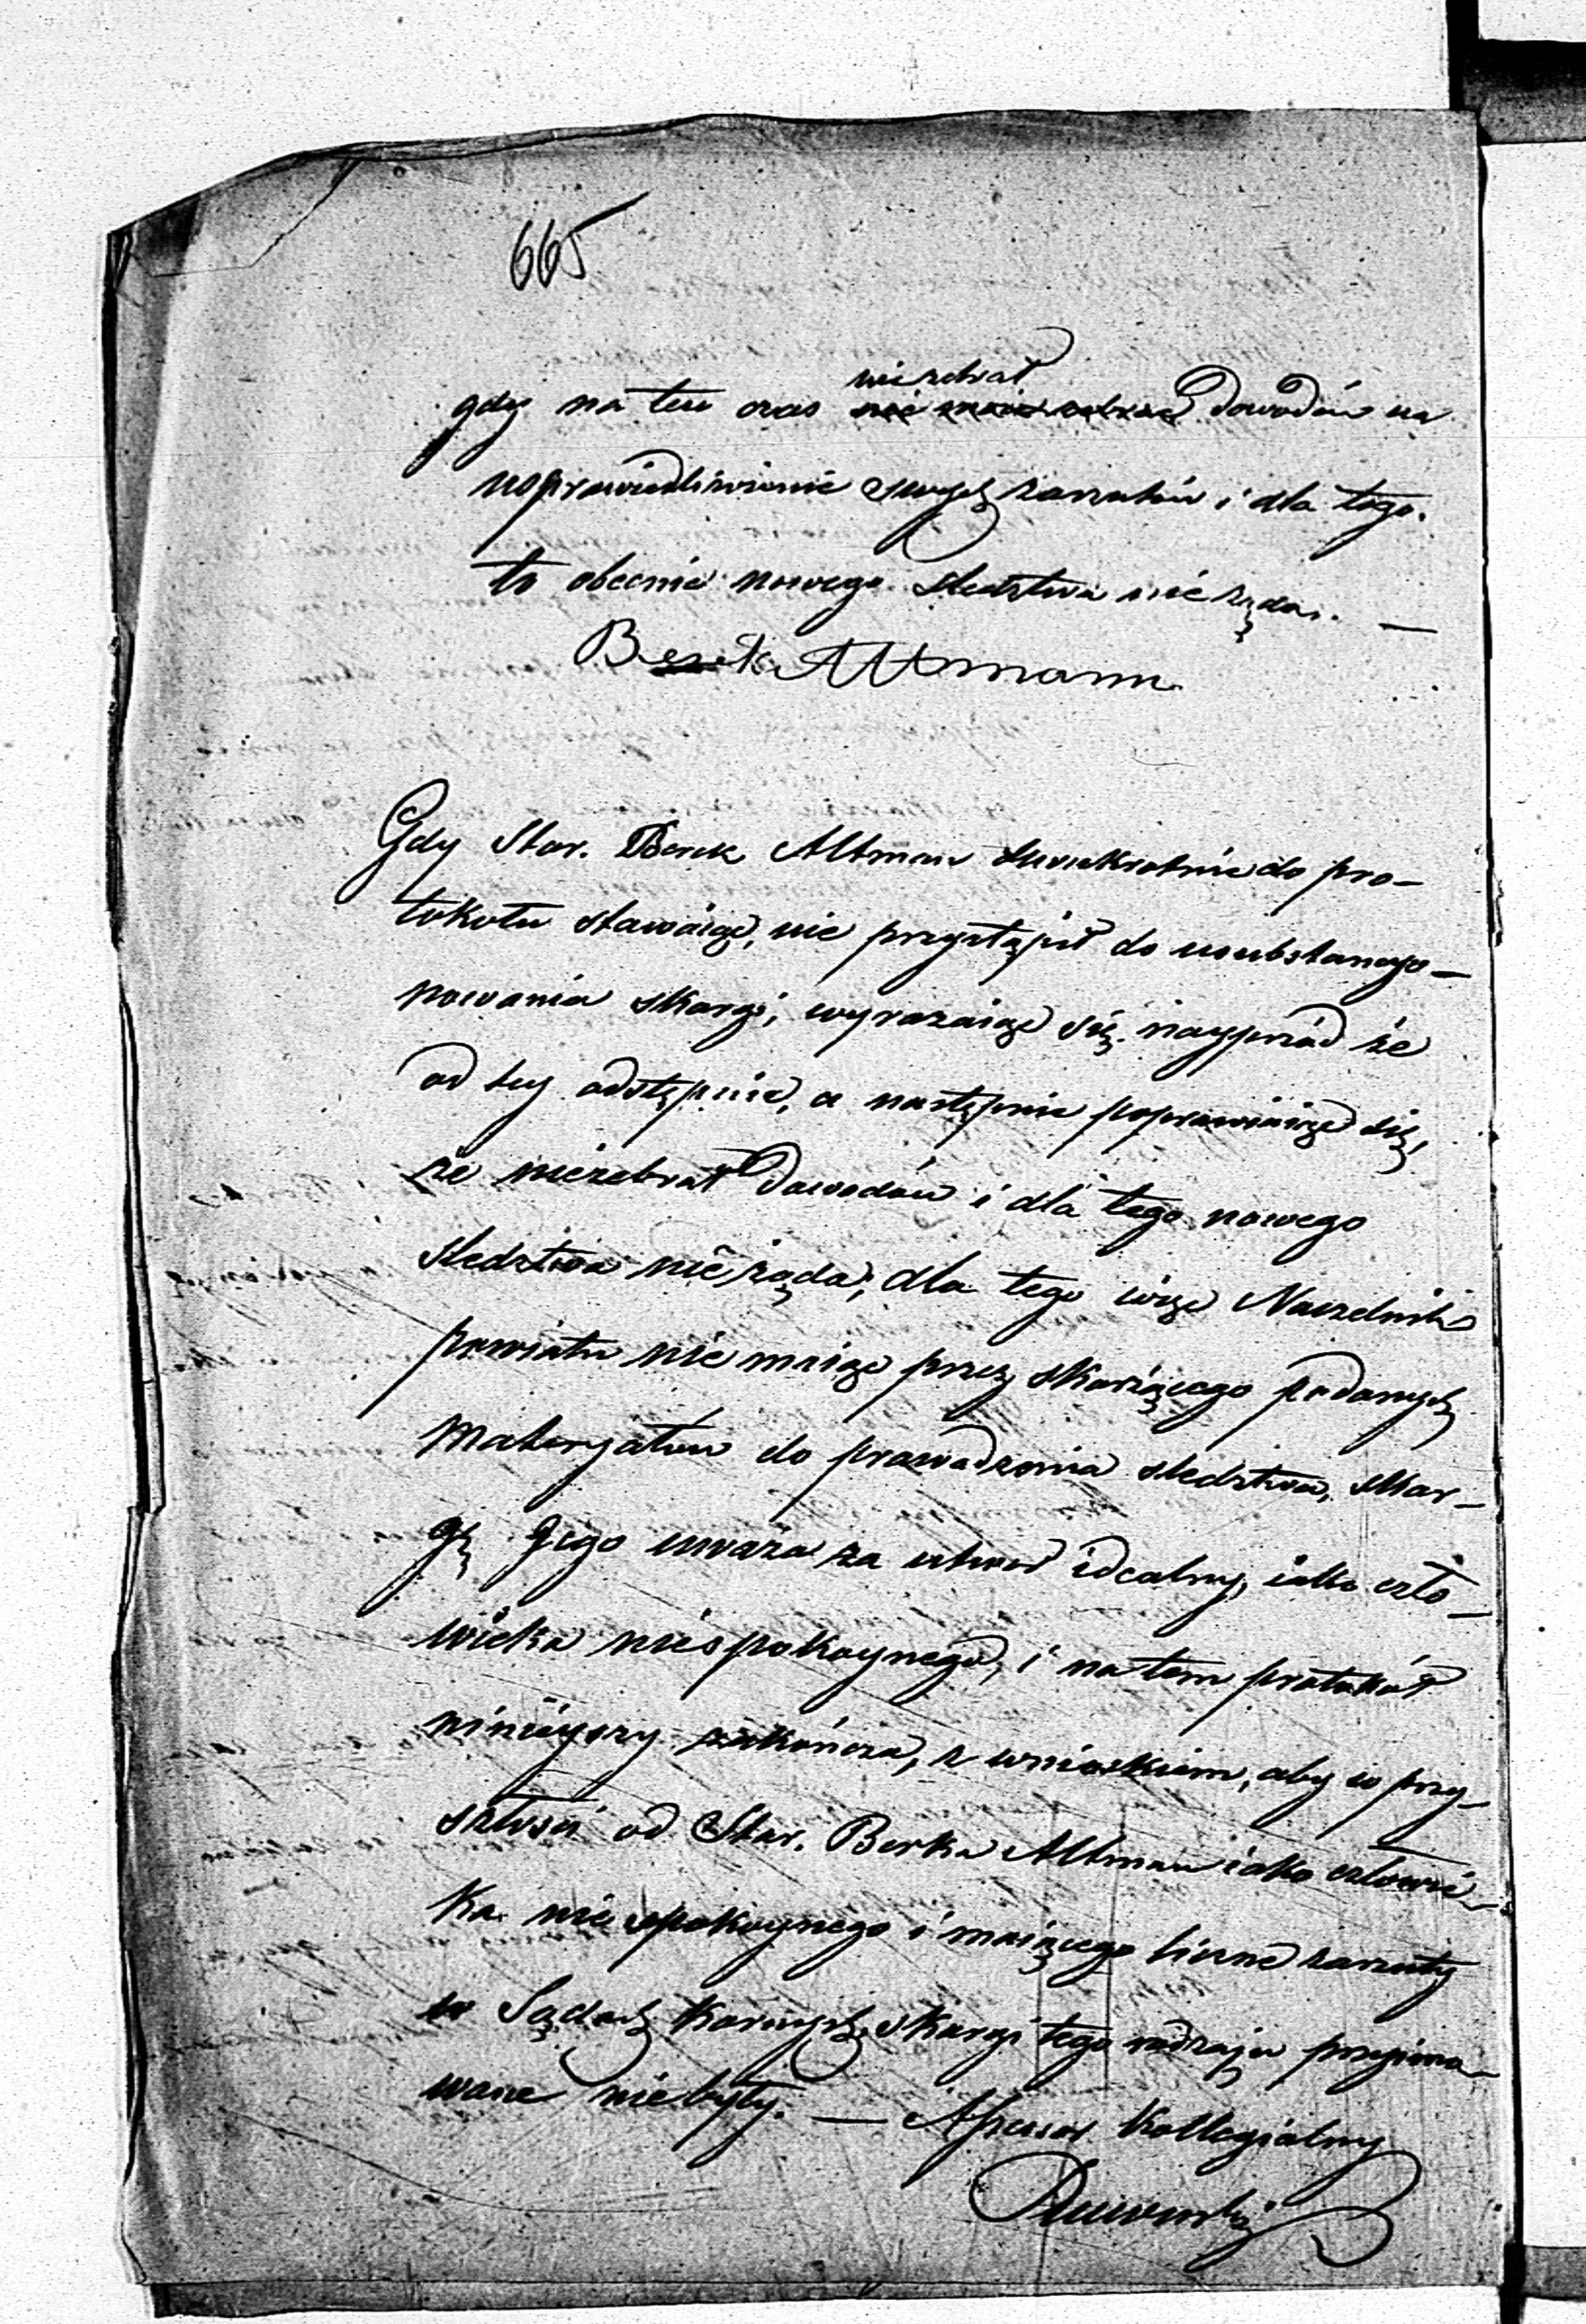 665
niezebrał
gdy na ten czas nie może zebrać dowodów na
usprawiedliwienie swych zarzutów i dla tego
to obecnie nowego śledztwa nie żąda. —
Berek Altmann
Gdy Star. Berek Altman dwukrotnie do pro-
tokołu stawaiąc, nie przystąpił do usubstancyo-
nowania skargi, wyrażaiąc się nayprzód że
od tey odstępuie, a następnie poprawiaiąc się,
że niezebrał dowodów i dla tego nowego
śledztwa nie żąda; dla tego więc Naczelnik
powiatu nie maiąc przez skarżącego podanych
materyałów do prowadzenia śledztwa, skar-
gę Jego uważa za utwór idealny, iako czło-
wieka niespokoynego, i na tem protokół
ninieyszy zakończa, z wnioskiem, aby w przy-
szłości od Star. Berka Altman iako człowie-
ka niespokoynego i maiącego liczne zarzuty
w Sądach Karnych, skargi tego rodzaju przyimo-
wane nie były. — Assessor Kollegialny